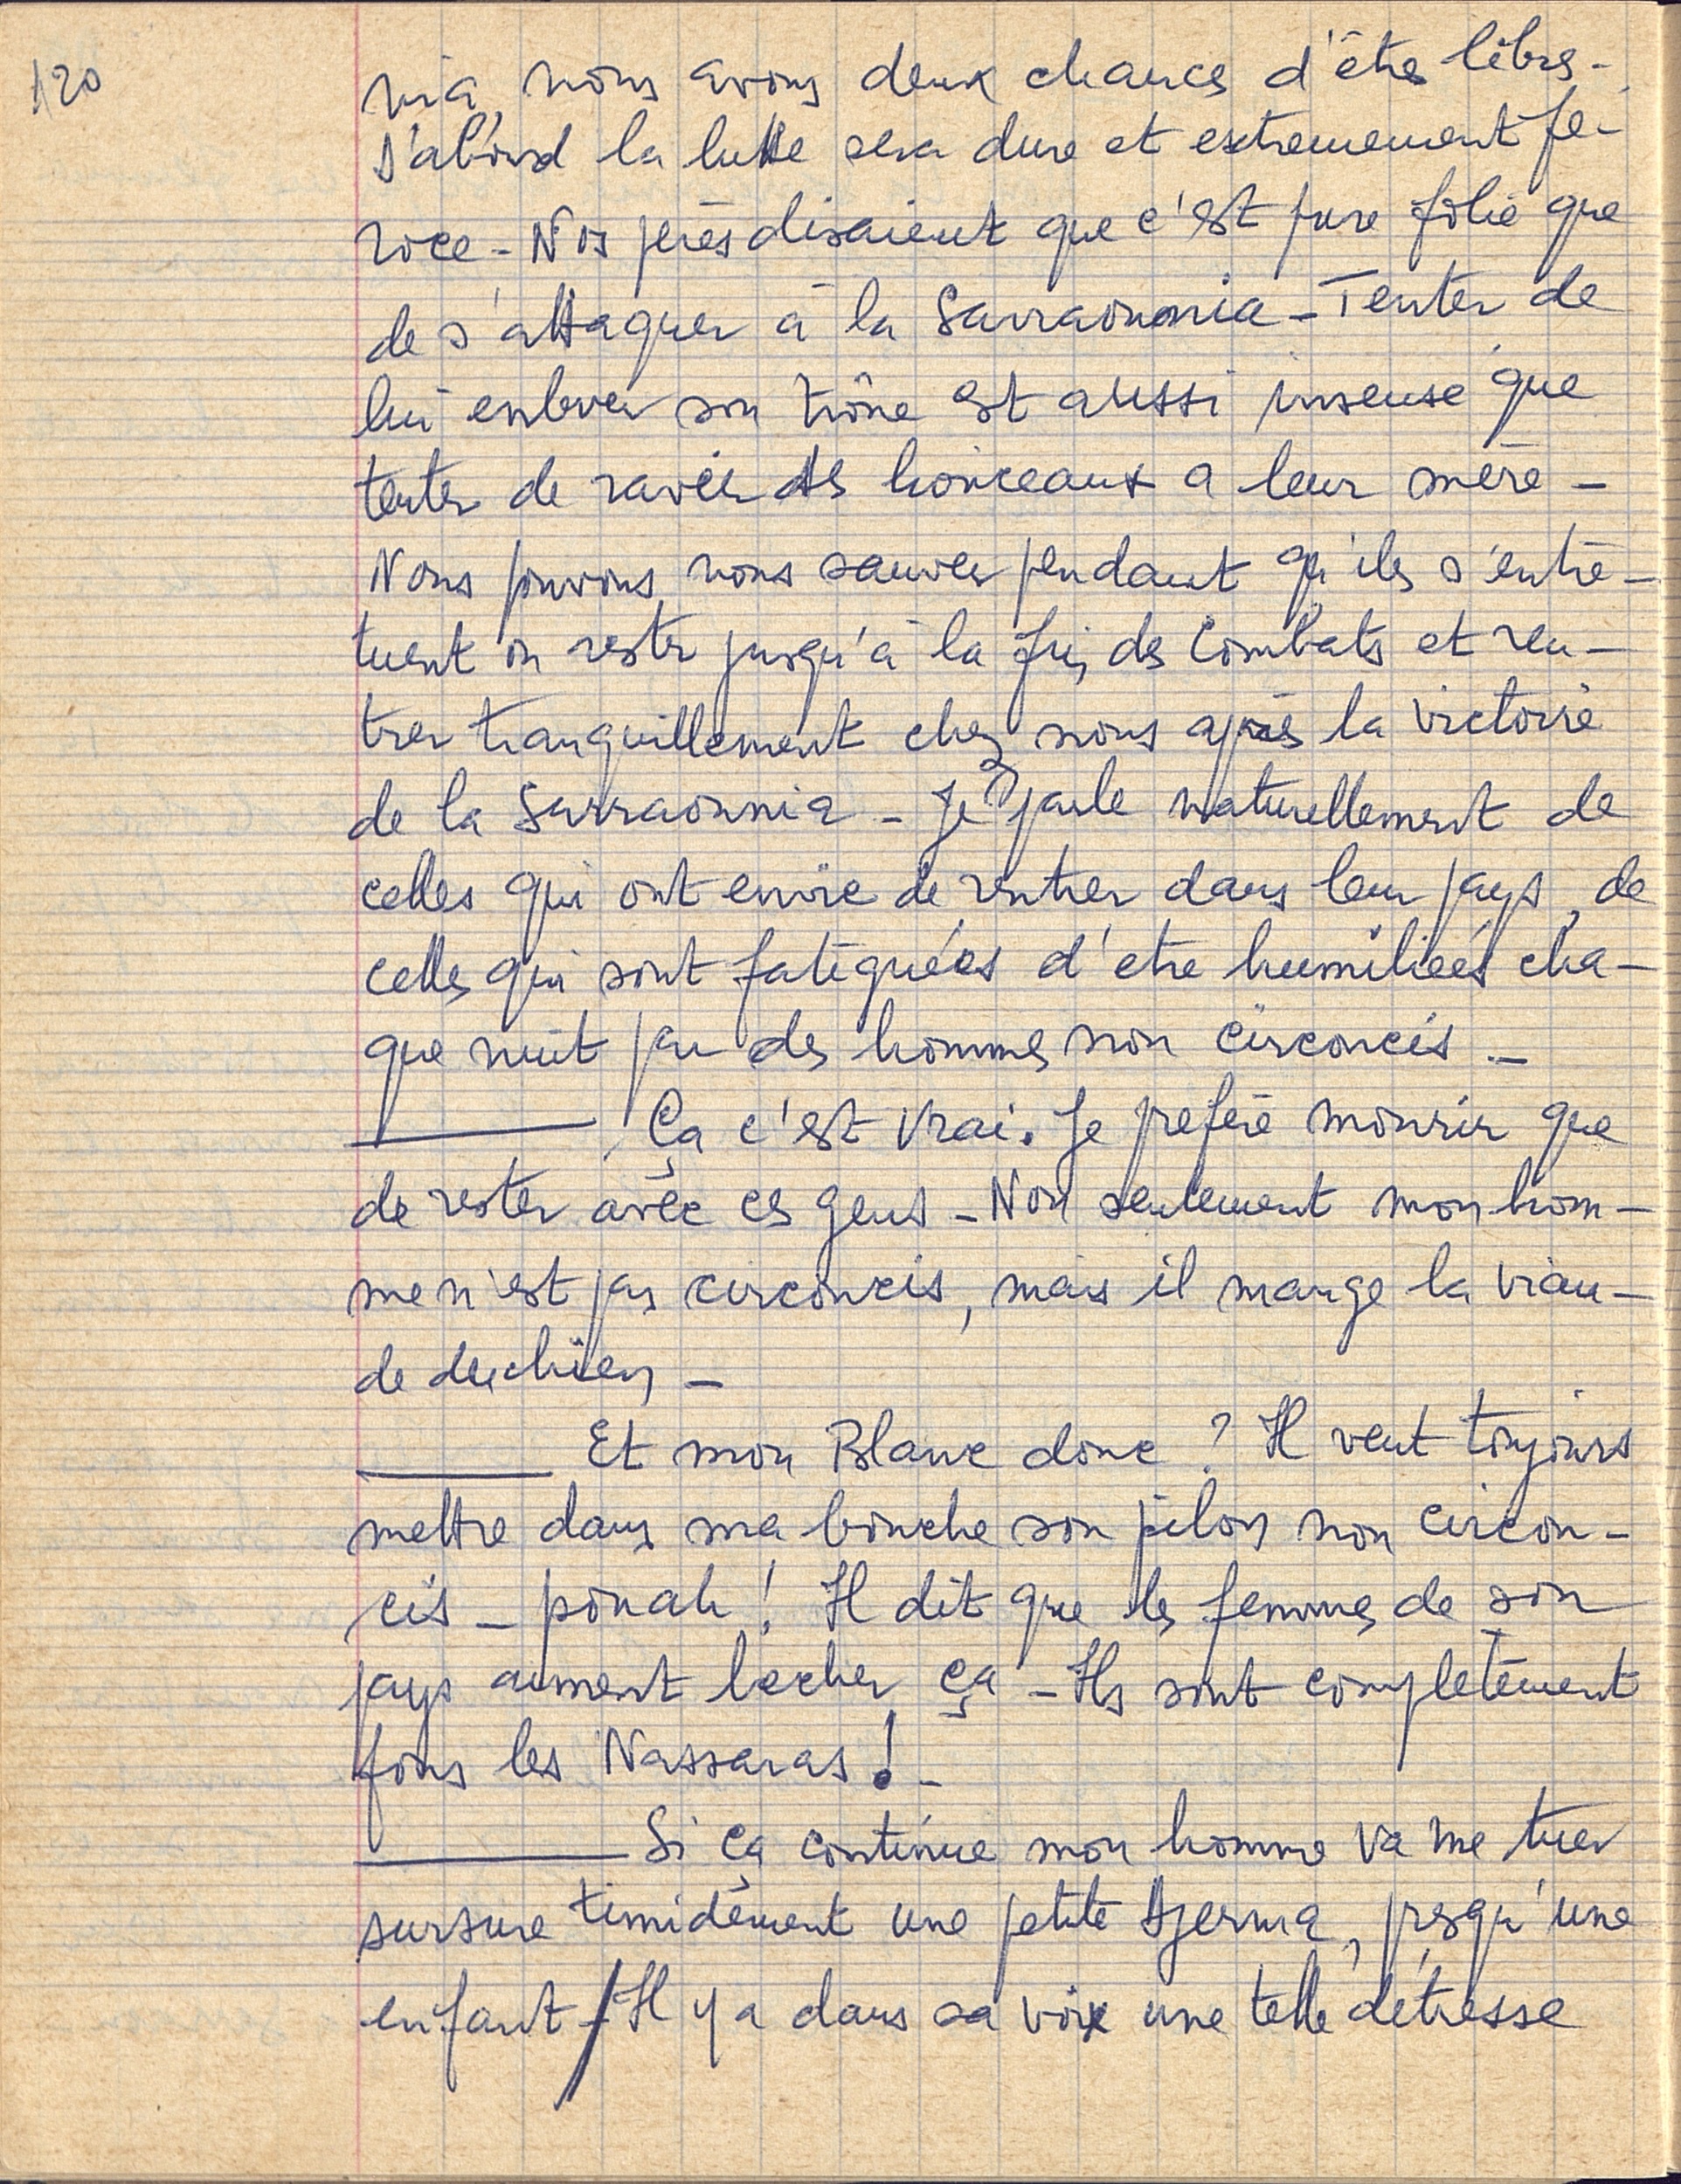 120
nia, nous avons deux chances d'être libres -
D'abord la lutte sera dure et extremement fé-
roce - Nos pères disaient que c'est pure folie que
de s'attaquer à la Sarraounia - Tenter de
lui enlever son trône est aussi insensé que
tenter de ravir des lionceaux a leur mère -
Nous pouvons nous sauver pendant qu'ils s'entre-
tuent ou rester jusqu'à la fin des combats et ren-
trer tranquillement chez nous après la victoire
de la Sarraounia - Je parle naturellement de
celles qui ont envie de rentrer dans leur pays, de
celles qui sont fatiguées d'etre humiliées cha-
que nuit par des hommes non circoncis -
——— Ça c'est vrai. Je préfère mourir que
de rester avec ces gens - Non seulement mon hom-
me n'est pas circoncis, mais il mange la vian-
de du chien -
——— Et mon Blanc donc ? Il veut toujours
mettre dans ma bouche son pilon non circon-
cis - pouah ! Il dit que les femmes de son
pays aiment lecher ça - Ils sont complètement
fous les Nassaras ! -
——— Si ça continue mon homme va me tuer
sursure timidement une petite djerma, presqu'une
enfant - / Il y a dans sa voix une telle détresse